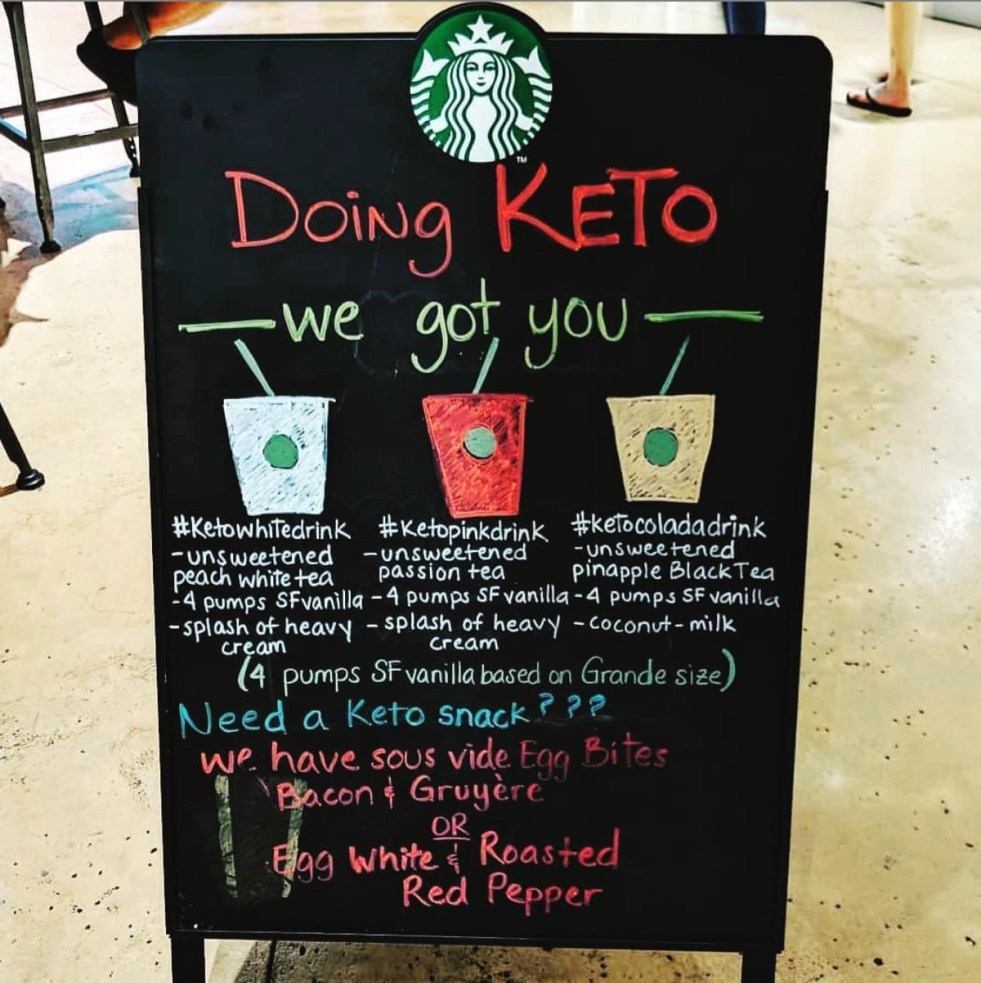 TM
Doing KETO
we got you
#Ketowhitedrink
-unsweetened
peach white tea
-4 pumps SF vanilla
-splash of heavy
cream
#Ketopinkdrink
-unsweetened
passion tea
-4 pumps SF vanilla
-splash of heavy
cream
#ketocoladadrink
-unsweetened
pinapple Black Tea
-4 pumps SF vanilla
-coconut-milk
(4 pumps SF vanilla based on Grande size)
Need a Keto snack???
we have sous vide Egg Bites
Bacon & Gruyère
OR
Egg White & Roasted
Red Pepper